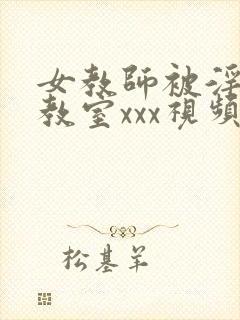 女教師被淫
教室xxx視頻
松基羊